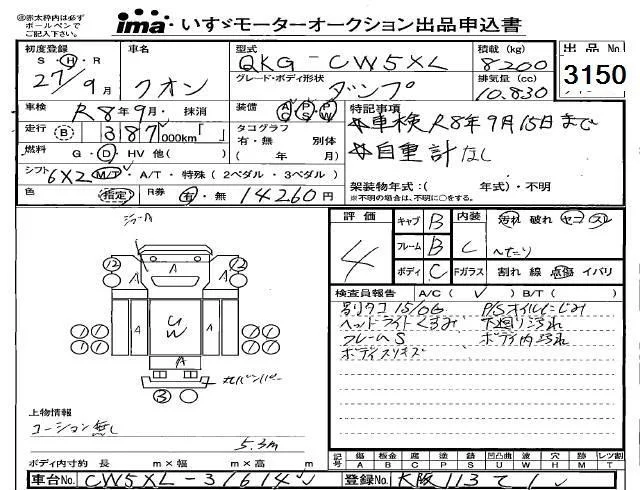 ㊟赤太枠内は必ず
ボールペンで
ご記入下さい。
ima いすゞモーターオークション出品申込書
出品No
3150
初度登録 S・H・R 27/9月
車名 クオン
型式 QKG-CW5XL
グレード・ボディ形状 ダンプ
積載(kg) 8200
排気量(cc) 10,830
車検 R8年9月・抹消
走行 B 387,000km「 」
燃料 G・D・HV 他( )
シフト 6X2 M/T・A/T・特殊(2ペダル・3ペダル)
色 指定 R券 有・無 14260円
装備 AC PS PW
タコグラフ 有・無 別体
( 年 月)
特記事項
☆車検R8年9月15日まで
☆自重計なし
架装物年式:( 年式)・不明
※不明の場合は、不明に○をする。
評価 4
キャブ B
フレーム B
ボディ C
内装 C
汚れ 破れ ヤニ スレ
へたり
Fガラス 割れ 線 点傷 イバリ
検査員報告 A/C( ✓ ) B/T( )
別タコ 15/06 P/Sオイルにじみ
ヘッドライトくすみ 下廻り汚れ
フレームS ボディ内汚れ
ボディスリキズ
ショーA
12 12
A A A
A A
UW
A
3
丸バンパー
上物情報
コーション無し
5.3m
ボディ内寸約 長 m×幅 m×高 m
記号 傷 A 板金 B 腐 C 塗 P 錆 S 凹凸曲 U 波 W 穴 H 跡 M レツ割 T
車台No. CW5XL-31614
登録No. 大阪113て1